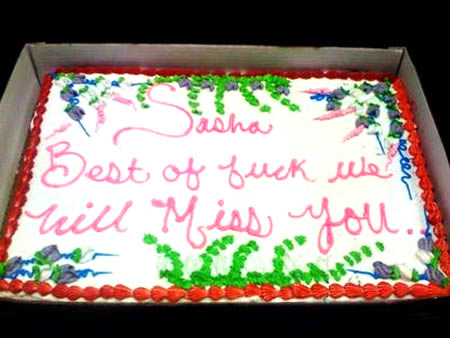 Sasha
Best of fuck we
will Miss You..